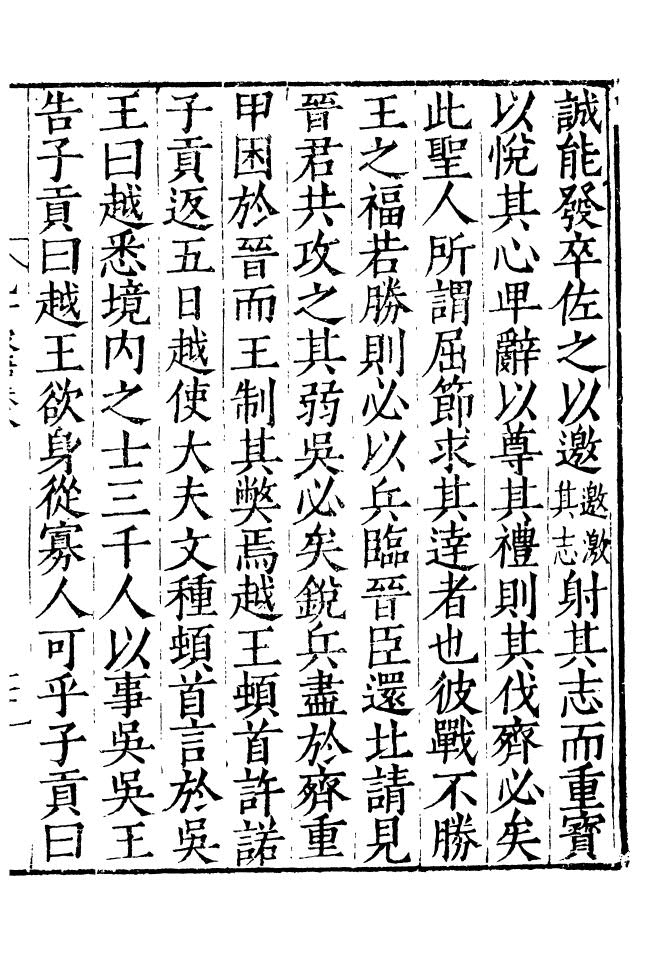 誠能發卒佐之以邀邀激其志射其志而重寳
以恱其心甲辭以尊其禮則其伐齊必矣
此聖人所謂屈節求其逹者也彼戰不勝
王之福若勝則必以兵臨晉臣還北請見
晉君共攻之其弱吳必矣銳兵盡於齊重
甲困於晉而王制其弊焉越王頓首許諾
子貢返五日越使大夫文種頓首言於吳
王曰越悉境内之士三千人以事吳吳王
告子貢曰越王欲身從寡人可乎子貢曰